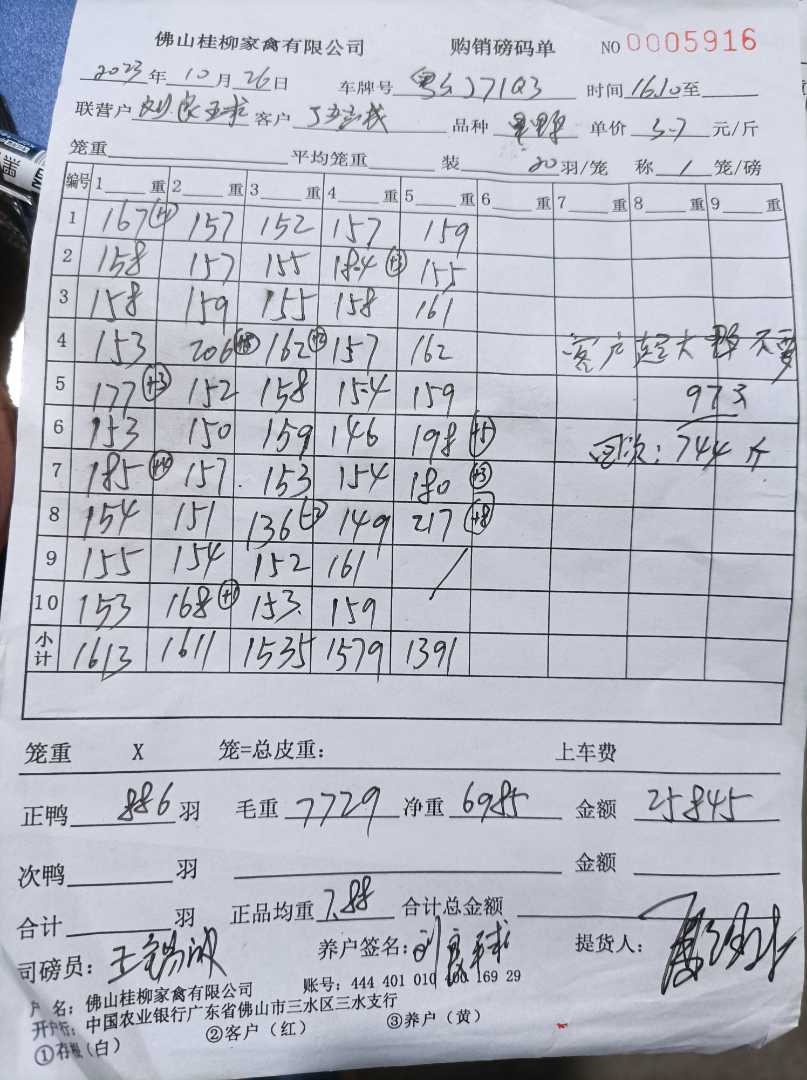 佛山桂柳家禽有限公司 购销磅码单 NO 0005916
2023年10月26日 车牌号 时间16.10至
联营户 客户 品种 单价 3.7 元/斤
笼重 平均笼重 装 20 羽/笼 称 1 笼/磅
编号 1 重 2 重 3 重 4 重 5 重 6 重 7 重 8 重 9 重
1 167(+4) 157 152 157 159
2 158 157 155 184(+3) 155
3 158 159 155 158 161
4 153 206 162(+2) 157 162 客户超大野不要
5 177(+3) 152 158 154 159 973
6 153 150 159 146 198(+5) 回次:744斤
7 185(+4) 157 153 154 180(+3)
8 154 151 136(-2) 149 217(+8)
9 155 154 152 161 /
10 153 168(+1) 153 159
小计 1613 1611 1535 1579 1391
笼重 X 笼=总皮重: 上车费
正鸭 886 羽 毛重 7729 净重 6985 金额 25845
次鸭 羽 金额
合计 羽 正品均重 7.88 合计总金额
司磅员: 养户签名: 提货人:
户名: 佛山桂柳家禽有限公司 账号: 444 401 010 400 169 29
开户行: 中国农业银行广东省佛山市三水区三水支行
①存根(白) ②客户(红) ③养户(黄)